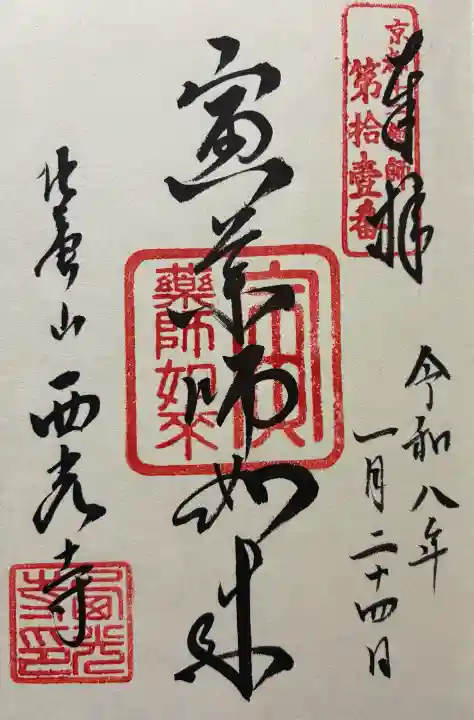 奉拝
京都十二薬師
第拾壹番
令和八年
一月二十四日
寅薬師如来
寅
藥師如来
北養山 西光寺
西光
寺印